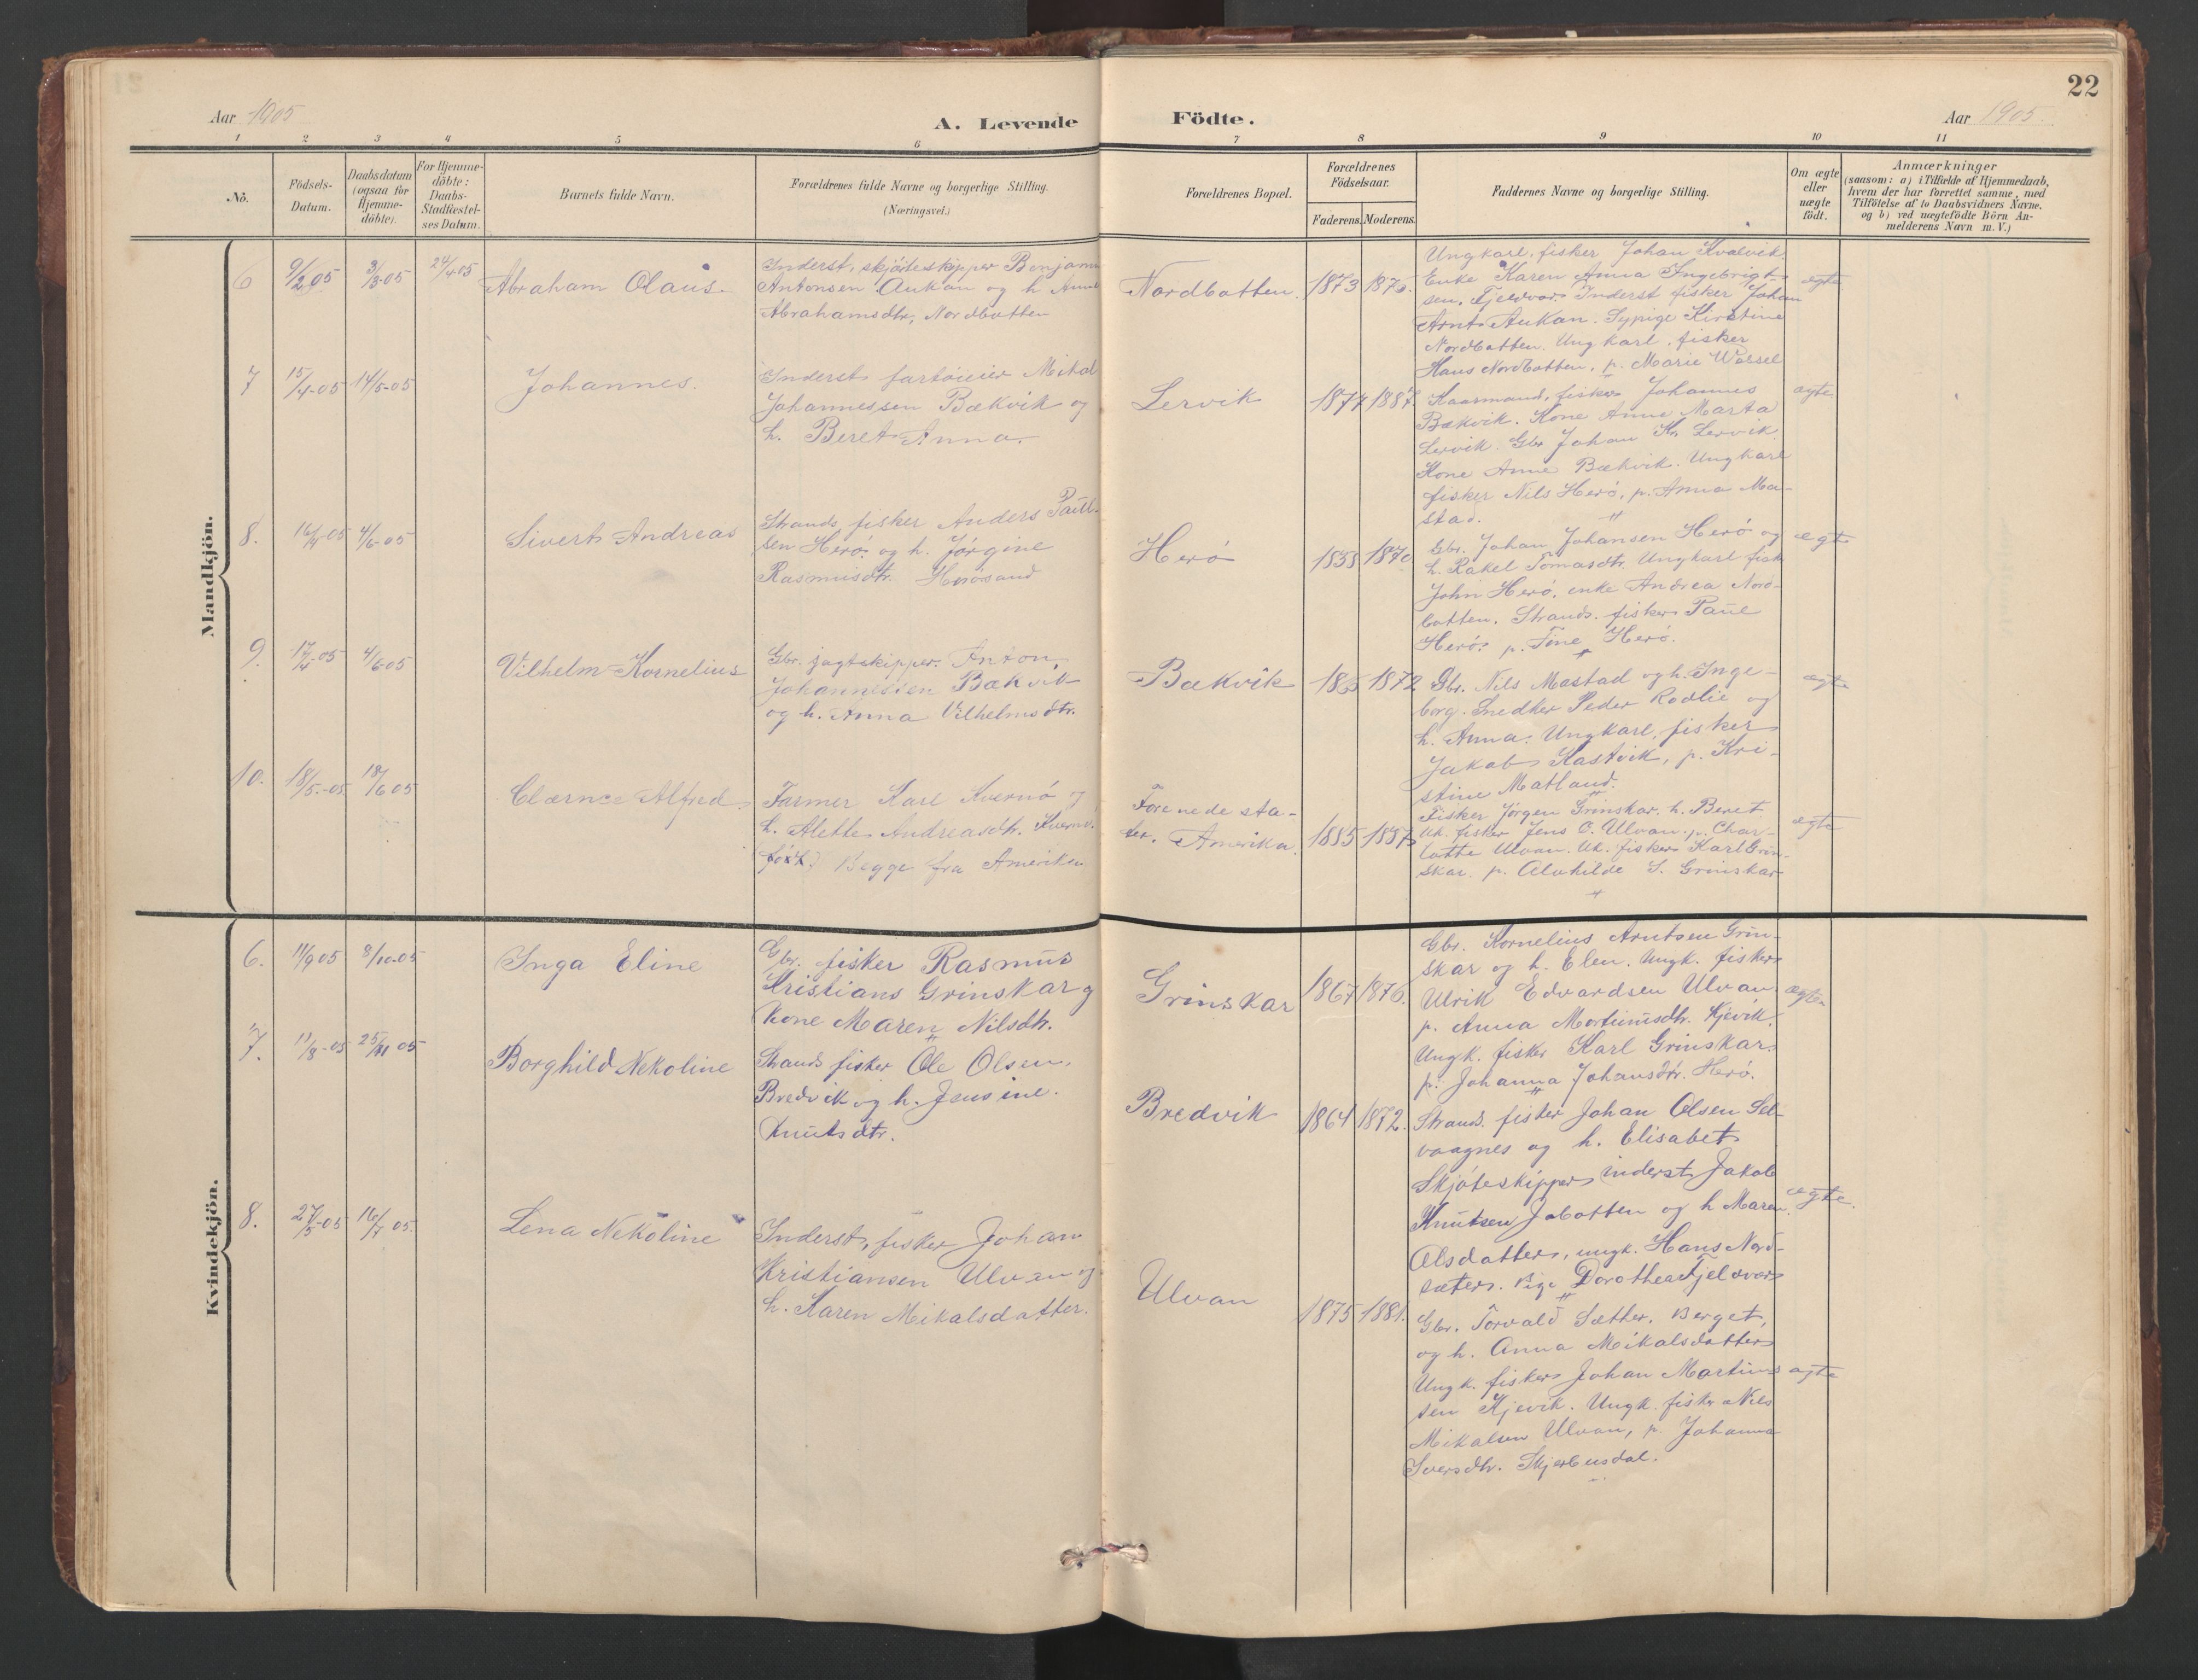 22
Aar 1905
A. Levende
Födte.
Aar 1905.
1 2 3 4 5 6 7 8 9 10 11
No.
Födsels-
Datum.
Daabsdatum
(ogsaa for
Hjemme-
döbte).
For Hjemme-
döbte:
Daabs-
Stadfæstel-
ses Datum.
Barnets fulde Navn.
Forældrenes fulde Navne og borgerlige Stilling.
(Næringsvei.)
Forældrenes Bopæl.
Forældrenes
Födselsaar.
Faderens. Moderens.
Faddernes Navne og borgerlige Stilling.
Om ægte
eller
uægte
födt.
Anmærkninger
(saasom: a) i Tilfælde af Hjemmedaab,
hvem der har forrettet samme, med
Tilföielse af to Daabsvidners Navne,
og b) ved uægtefödte Börn An-
melderens Navn m. V.)
Mandkjön.
6 9/2 05 3/3-05 24/4 05 Abraham Olaus.
Inderst, skjöteskipper Benjamin
Antonsen Aukan og h. Anne
Abrahamsdtr, Nordbotten
Nordbotten. 1873 1876.
Ungkarl, fisker Johan Kvalvik.
Enke Karen Anna Ingebrigt-
sen, Fjeldvær. Inderst fisker Johan
Arnt Aukan. Sypige Kirstine
Nordbotten. Ungkarl, fisker
Hans Nordbotten, p. Marie Worsel
ægte
7 15/4-05 14/5-05 Johannes.
Inderst fartøieier Mikal
Johannessen Bækvik og
h. Beret Anna.
Lervik 1874 1887.
Kaarmand, fisker Johannes
Bækvik. Kone Anne Marta
Lervik. Gbr Johan K. Lervik
Kone Anne Bækvik. Ungkarl
fisker Nils Herö, p. Anna Ma-
stad.
ægte
8. 16/4-05 4/6-05 Sivert Andreas
Strands. fisker Anders Paul-
sen Herö og h. Jörgine
Rasmusdtr. Herösand
Herö 1838 1870
Gbr. Johan Johansen Herö og
h. Rakel Tomasdtr. Ungkarl fisk.
John Herö, enke Andrea Nord-
botten. Strands. fisker Paul
Herö. p. Tine Herö.
ægte
9. 17/4-05 4/6-05 Vilhelm Kornelius
Gbr. jagtskipper Anton
Johannessen Bækvik
og h. Anna Vilhelmsdtr.
Bækvik 1865 1872
Gbr. Nils Mastad og h. Inge-
borg. Snedker Peder Rodlie og
h. Anna. Ungkarl, fisker
Jakob Kastvik, p. Kri-
stine Matland.
ægte
10. 18/5-05 18/6 05 Clærnce Alfred
Farmer Karl Kvernö og
h. Alette Andreasdtr. Kvernö.
Begge fra Amerika
Forenede sta-
ter. Amerika. 1885 1887
Fisker Jörgen Grinskar. h. Beret
Uk. fisker Jens O. Ulvan. p. Char-
lotte Ulvan. Uk. fisker Karl Grin-
skar. p. Alvhilde S. Grinskar
ægte
Kvindekjön.
6. 11/9 05 8/10-05 Inga Eline
Gbr. fisker Rasmus
Kristians Grinskar og
Kone Maren Nilsdtr.
Grinskar 1867 1876.
Gbr. Kornelius Arntsen Grin-
skar og h. Elen. Ungk. fisker
Ulrik Edvardsen Ulvan
p. Anna Martinusdtr. Kjevik.
Ungk. fisker Karl Grinskar.
p. Johanna Johansdtr. Herö.
ægte
7. 11/8-05 25/11 05 Borghild Nekoline
Strands fisker Ole Olsen.
Bredvik og h. Jensine.
Knutsdtr.
Bredvik 1864 1872.
Strands. fisker Johan Olsen Sel-
vaagnes og h. Elisabet
Skjöteskipper inderst Jakob
Knutsen Jabotten og h Maren
Olsdatter, ungk. Hans Nord-
sæter. Pige Dorothea Fjeldvær
ægte.
8. 27/5-05 16/7 05. Lena Nekoline
Inderst, fisker Johan
Kristiansen Ulvan og
h. Karen Mikalsdatter.
Ulvan 1875 1881.
Gbr. Torvald Sæther. Berget,
og h. Anna Mikalsdatter
Ungk. fisker Johan Martinus-
sen Kjevik. Ungk. fisker Nils
Mikalsen Ulvan, p. Johanna
Iversdtr. Skjerbusdal.
ægte